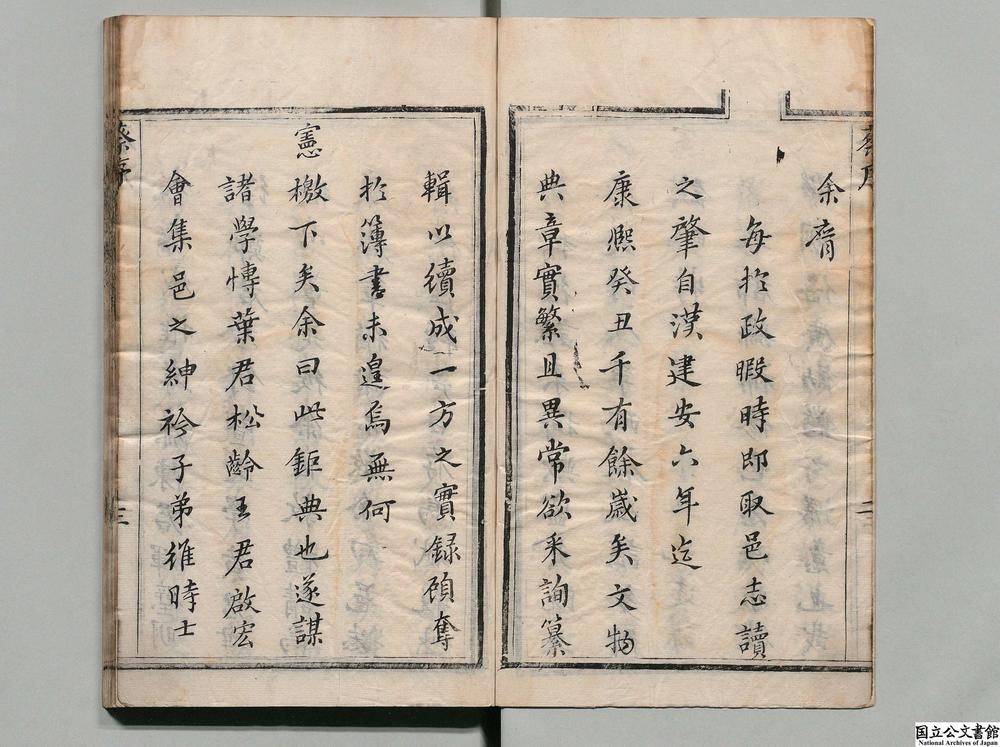 蔡序
二
余膺
每扵政暇時即取邑志讀
之肇自漢建安六年迄
康熙癸丑千有餘歲矣文物
典章實繁且異常欲采詢纂
輯以續成一方之實録頋奪
扵簿書未遑焉無何
憲檄下矣余曰此鉅典也遂謀
諸學慱葉君松齡王君啟宏
會集邑之紳衿子弟維時士
蔡序
三
国立公文書館
National Archives of Japan